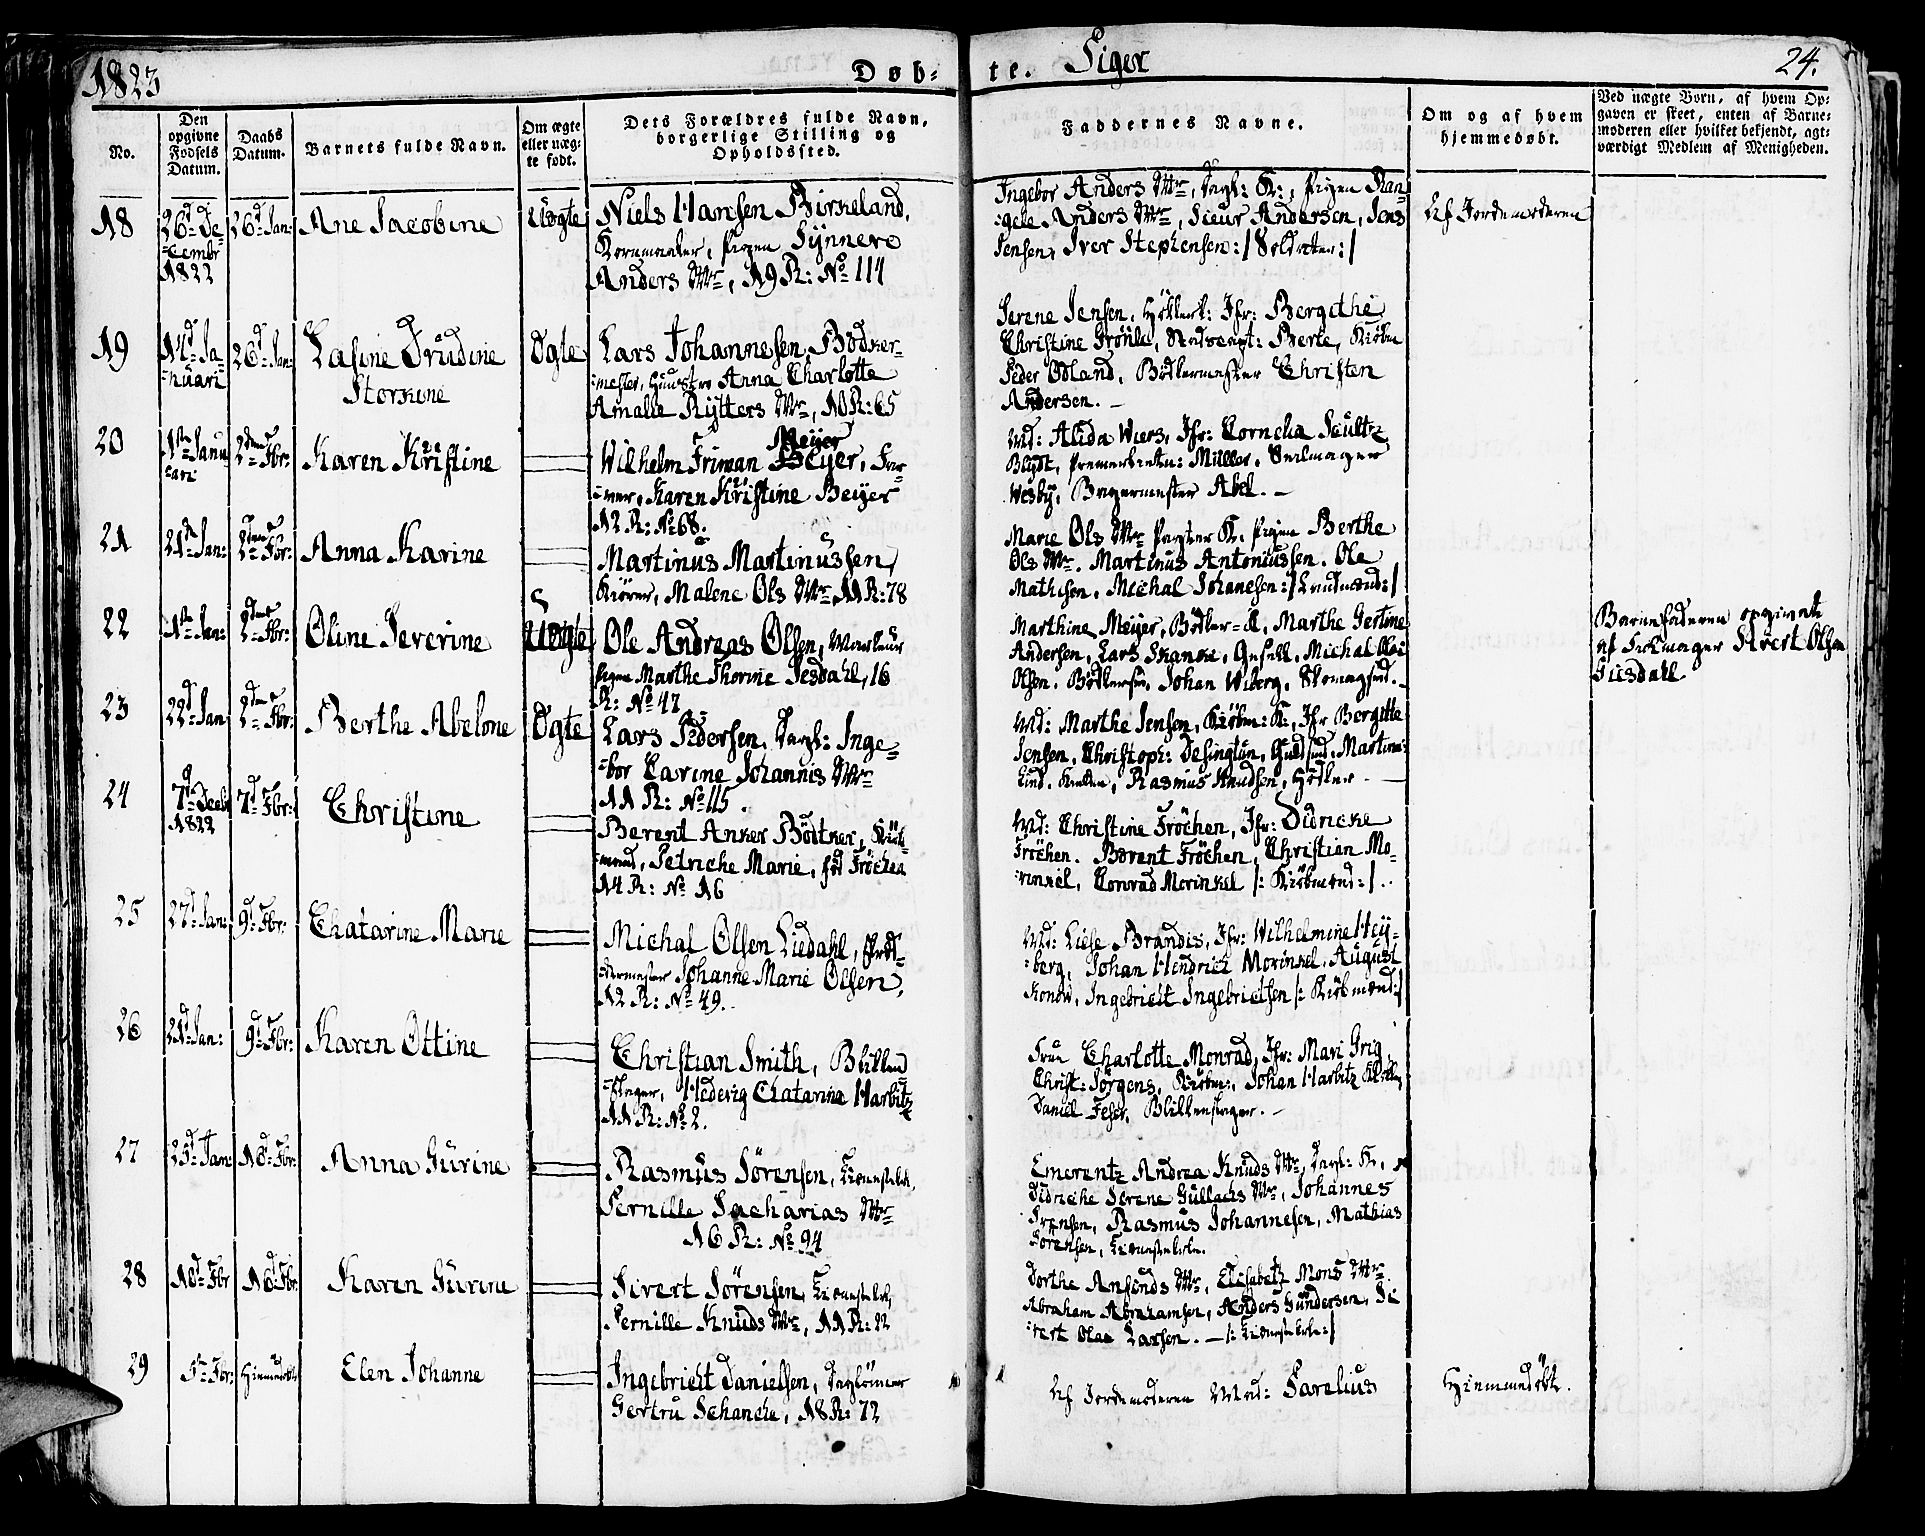 1823 Døb- te. Piger 24.
No.
Den opgivne Fødsels Datum.
Daabs Datum.
Barnets fulde Navn.
Om ægte eller uægte født.
Dets Forældres fulde Navn, borgerlige Stilling og Opholdssted.
Faddernes Navne.
Om og af hvem hjemmedøbt.
Ved uægte Børn, af hvem Opgaven er skeet, enten af Barnemoderen eller hvilket bekjendt, agtværdigt Medlem af Menigheden.
18 26d De- 26d Jan: Ane Jacobine Uægte Niels Hansen Birkeland,
=cembr Kornmaaler, Pigen Synnero
1822 Anders Dtr, 19 R: No 114
Ingebor Anders Dtr, Dagl: K:, Pigen Ran-
=gele Anders Dtr, Sieur Andersen, Jens
Jensen, Iver Stephensen :/ Soldater :/
Af Jordemoderen
19 14d Ja- 26d Jan: Lasine Trudine Ægte Lars Johannesen, Bødker-
=nuari Storkine =mester, Hustro Anna Charlotte
Amalle Rytters Dtr, 10 R: 65
Serene Jensen, Høkers K: Jfr: Bergithe
Christine Grönle,
Peder Odland, Bødkermester Christen
Andersen. -
20 1ste Janu- 2den Fbr: Karen Kristine = Wilhelm Friman Meyer, Far-
=ari =ver, Karen Kristine Beyer
12 R: No 68.
Md: Alida Wiers, Jfr: Cornelia Scultz
Blydt, Premierlieten: Müller, Seilmager
Wesby, Bagermester Abel. -
21 21d Jan: 2den Fbr: Anna Karine = Martinus Martinussen,
Malene Ols Dtr, 11 R: 78
Marie Ols Dtr K: Pigen Berthe
Ols Dtr. Martinus Antoniussen. Ole
Mathisen, Michal Johanesen :/ Landmænd :/
22 1ste Jan: 2den Fbr: Oline Severine Uægte Ole Andreas Olsen,
Pigen Marthe Thorine Jesdahl, 16
R: No 47
Marthine Meyer, Bødker-K, Marthe Gertine
Andersen, Lars Skanke, Gesell, Michal
Olsen, Bødkersv, Johan Wiberg, Skomagsvd. -
Barnefaderen opgivet
af Sivert Olsen
Giesdahl
23 22d Jan 2den Fbr: Berthe Abelone Ægte Lars Pedersen, Dagl: Inge-
=bor Carine Johannis Dtr
11 R: No 115.
Md: Marthe Jensen, Kiöbm: K:, Jfr Bergitte
Jensen, Christoph: Desington, Guldsmd, Martin
Lind, Rasmus Knudsen, Høker. -
24 7d Decbr 7d Fbr: Christine = Berent Anker Bödtker, Kiöb-
1822 =mand, Petriche Marie, fød Fröchen
14 R: No 16
Md: Christine Fröchen, Jfr: Didricke
Fröchen. Berent Fröchen, Christian Mo-
=rinkel, Conrad Morinkel /: Kiöbmænd :/.
25 27d Jan: 9d Fbr: Chatarine Marie = Michal Olsen Liedahl,
Johanne Marie Olsen,
12 R: No 49.
Md: Liese Brandis, Jfr: Wilhelmine Hey-
=berg, Johan Hendrich Morinkel, August
Konow, Ingebricht Ingebrictsen /: Kiöbmænd :/
26 21d Jan: 9d Fbr: Karen Ottine = Christian Smith, Blikken-
=slager, Hedevig Chatarina Harbitz
11 R: No 2.
Frue Charlotte Monrad, Jfr: Mari Grig,
Christ: Jörgens, Kiöbm:, Johan Harbitz
Daniel Feser, Blikkenslager. -
27 25d Jan: 16d Fbr: Anna Gurine = Rasmus Sörensen,
Pernille Zacharias Dtr
16 R: No 94
Emerentz Andrea Knuds Dtr, Dagl: K,
Didriche Serene Gullachs Dtr, Johannes
Rasmus Johannesen, Mathias
Sörensen,
28 10d Fbr 16d Fbr: Karen Gurine = Sivert Sörensen,
Pernille Knuds Dtr, 11 R: 22
Dorthe Amunds Dtr, Elisabetz Mons Dtr
Abraham Abrahamsen, Anders Gundersen, Si
=vert Olae Larsen. -
29 5te Fbr: Hiemmedöbt Elen Johanne = Ingebricht Danielsen, Daglönner
Gertru Schanche, 18 R: 72
Af Jordemoderen Mad: Sarelius
Hiemmedöbt.